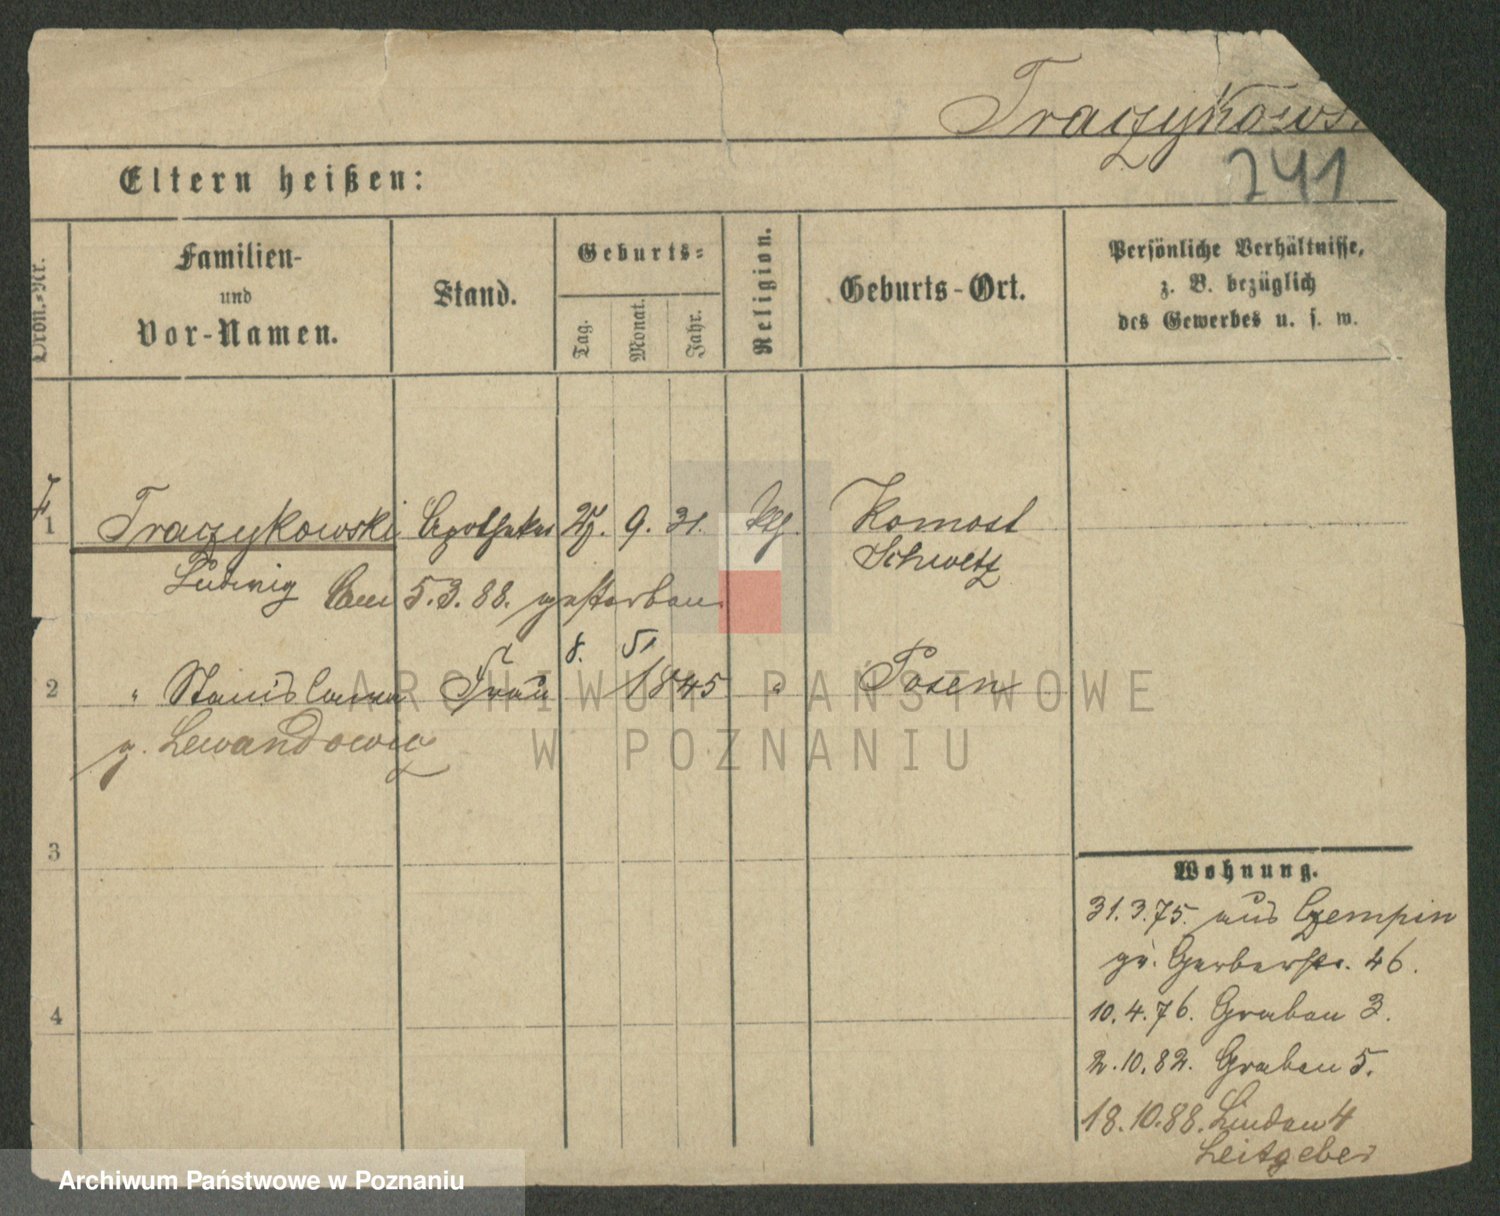 Traczykows
241
Eltern heißen:
Ordn.-Nr.
Familien-
und
Vor-Namen.
Stand.
Geburts-
Tag.
Monat.
Jahr.
Religion.
Geburts-Ort.
Persönliche Verhältnisse,
z. B. bezüglich
des Gewerbes u. s. w.
1 Traczykowski Apotheker 9. 31. kth. Komost
Schwetz
Ludwig Am 5.3.88. gestorben.
8. 5.
2 " Stanislawa Frau 1845 " Posen
g. Lewandowicz
3
4
Wohnung.
31.3.75. aus Czempin
Gerberstr. 46.
10.4.76. Graben 3.
2.10.82. Graben 5.
18.10.88. Linden 4
Leitgeber
ARCHIWUM PAŃSTWOWE
W POZNANIU
Archiwum Państwowe w Poznaniu